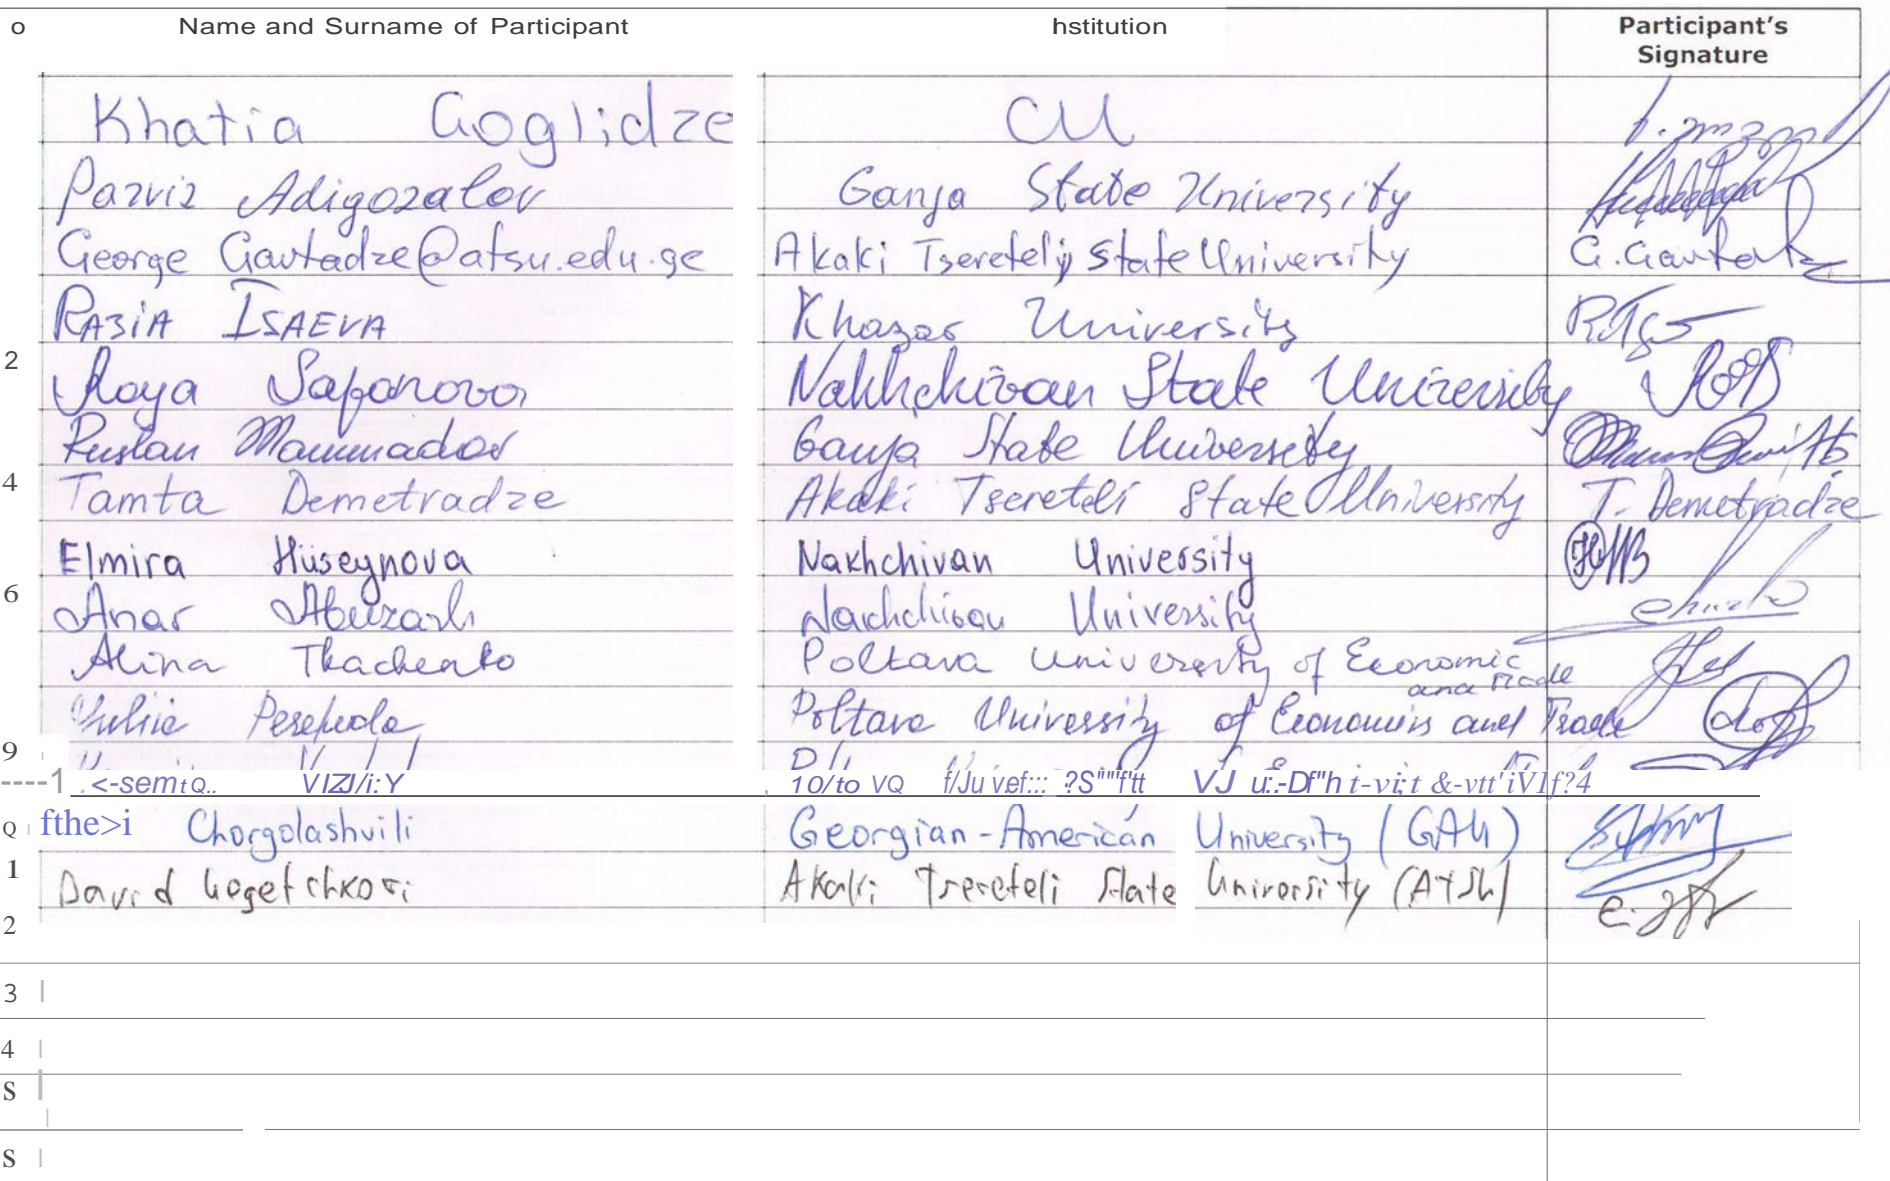 o Name and Surname of Participant hstitution Participant's
Signature
Khatia Goglidze CU
Parviz Adigozalov Ganja State University
George Gavtadze@atsu.edu.ge Akaki Tsereteli State University G. Gavtadze
RAZIA ISAEVA Khazar University
2
Roya Safarova Nakhchivan State University
Ruslan Mammadov Ganja State University
4
Tamta Demetradze Akaki Tsereteli State University T. Demetradze
Elmira Hüseynova Nakhchivan University
6
Anar Abuzarli Nachchivan University
Alina Tkachenko Poltava University of Economic
and Trade
Yuliia Perepeola Poltava University of Economics and Trade
9
----1 <-semtQ.. VIZJ/i:Y 10/to VQ f/Ju vef::: ?S""f'tt VJ u:.-Df"h t-vi;t &-vtt'iVIf?4
Q fthe>i Chorgolashvili Georgian-American University (GAU)
1
David Gogetchkori Akaki Tsereteli State University (ATSU)
2
3
4
S
S